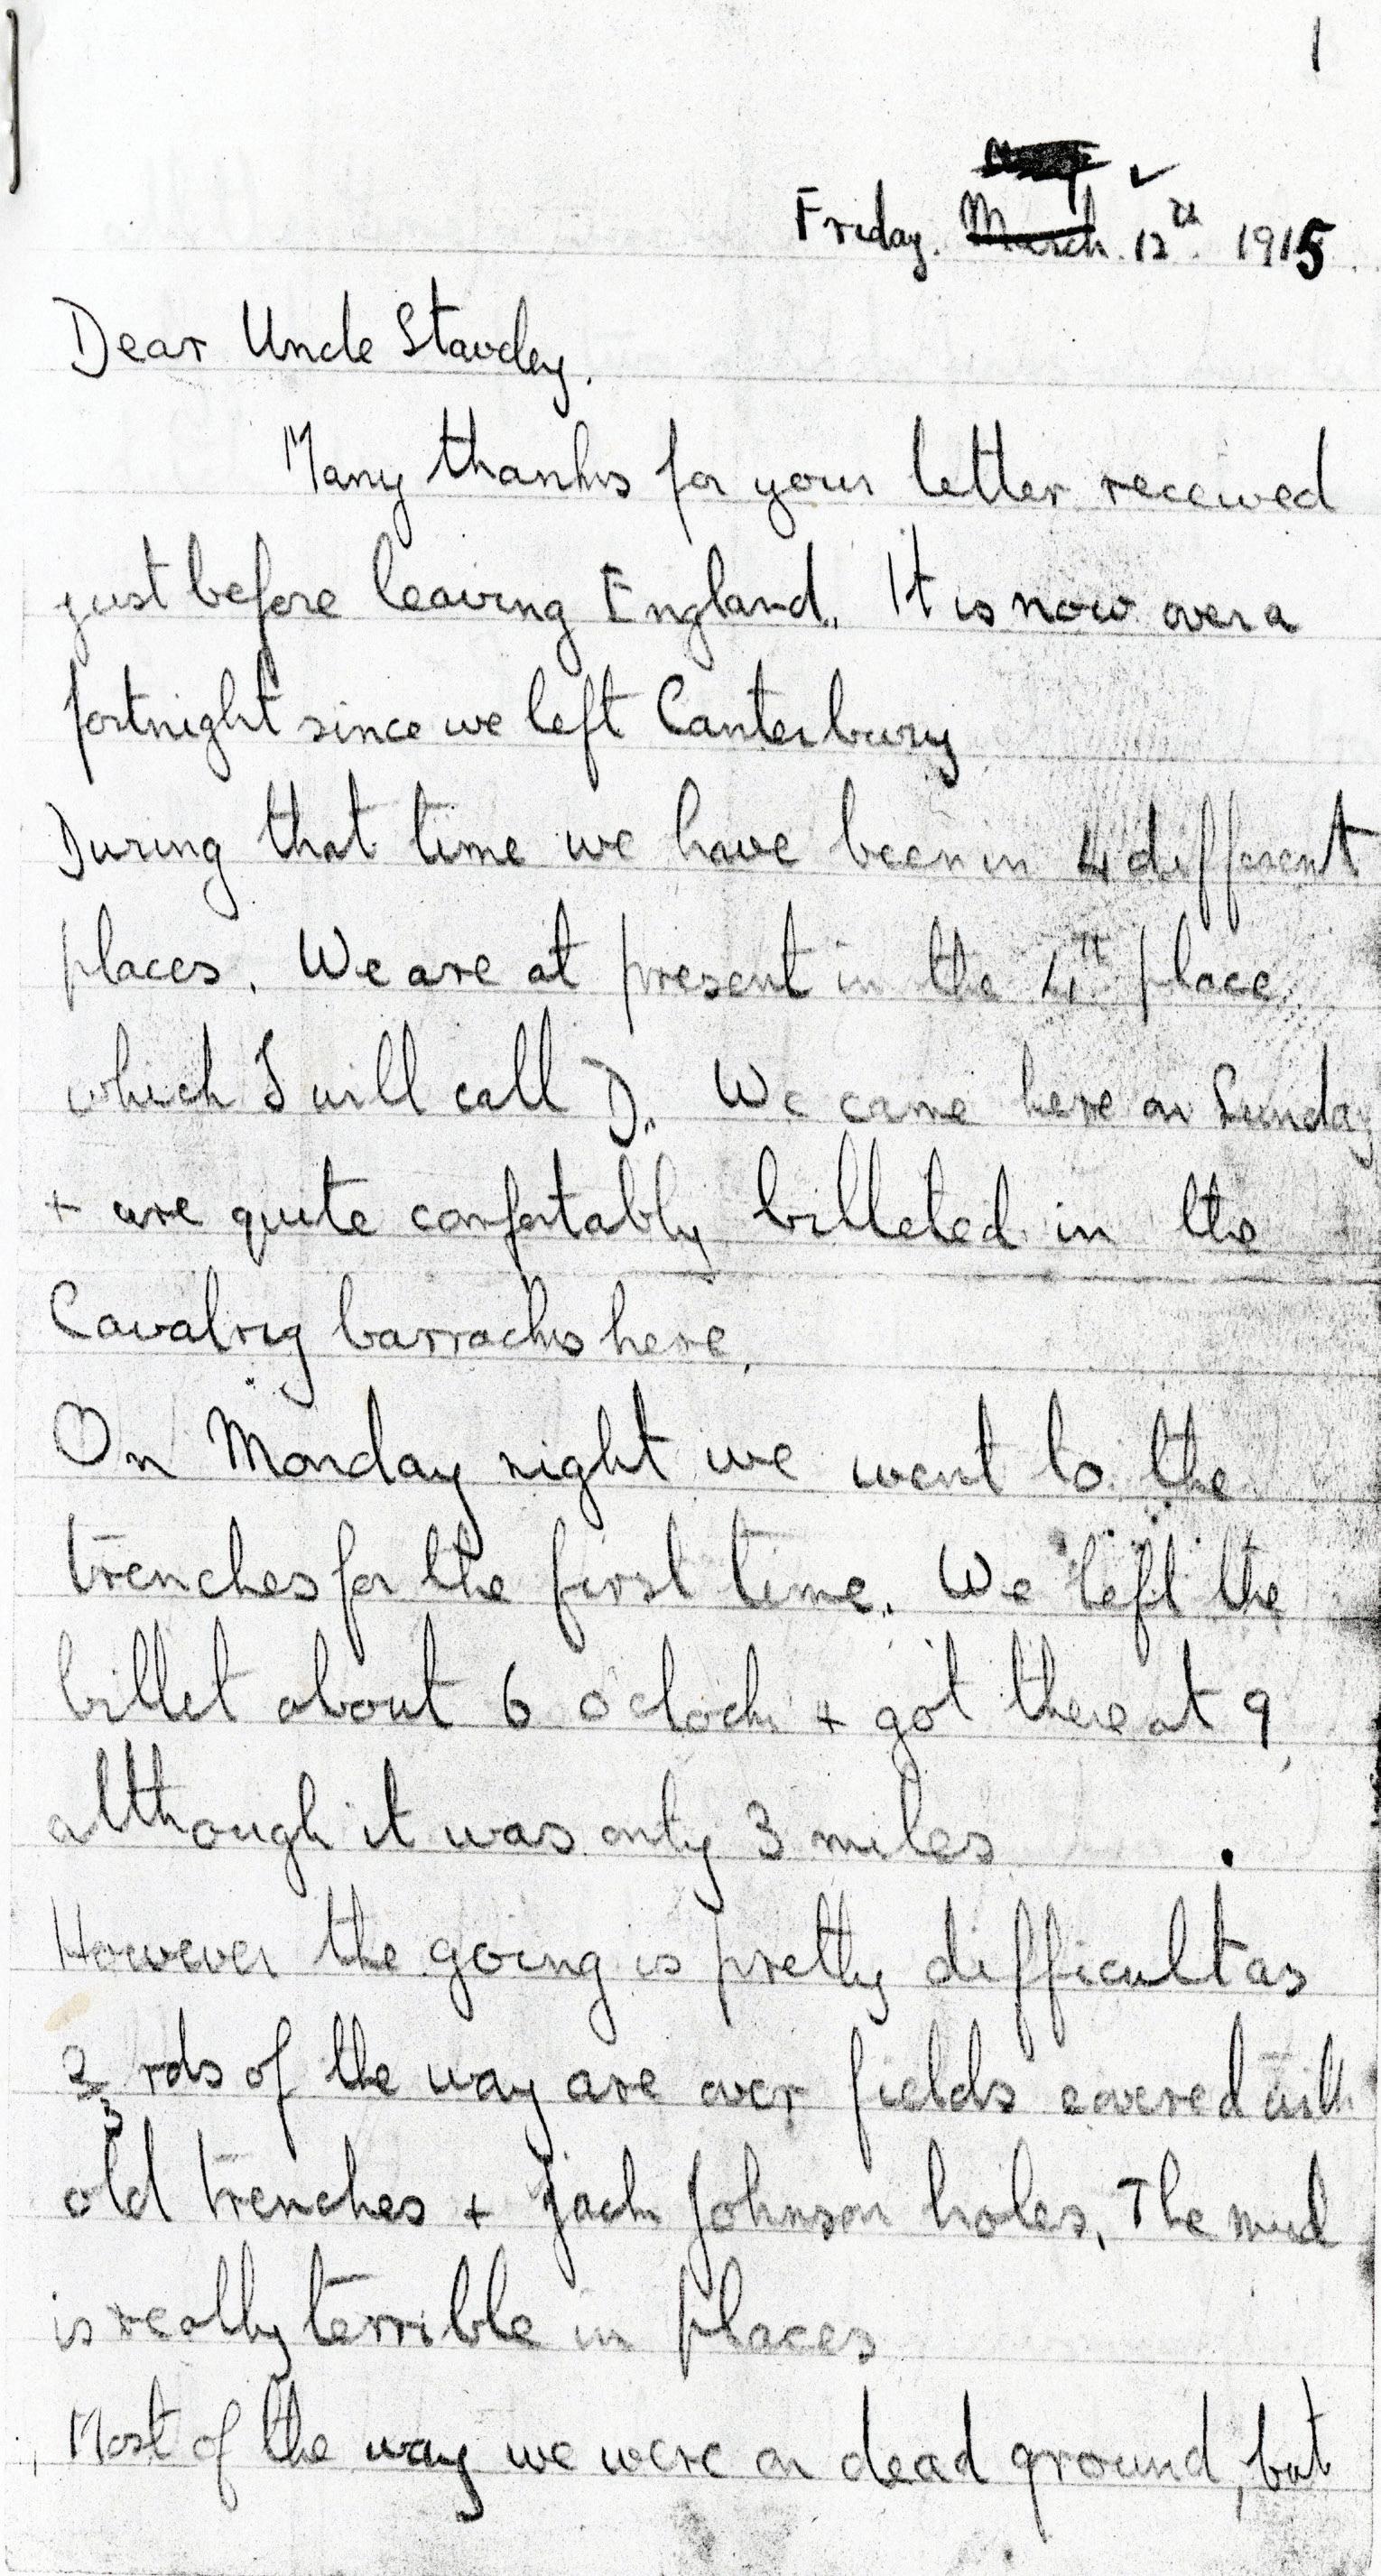 1
Friday. March. 12th. 1915.
Dear Uncle Staveley.
Many thanks for your letter received
just before leaving England. It is now over a
fortnight since we left Canterbury
During that time we have been in 4 different
places. We are at present in the 4th place
which I will call D. We came here on Sunday
+ are quite comfortably billeted in the
Cavalry barracks here.
On Monday night we went to the
trenches for the first time. We left the
billet about 6 o clock + got there at 9,
although it was only 3 miles
However the going is pretty difficult as
2/3 rds of the way are over fields covered with
old trenches + Jack Johnson holes. The mud
is really terrible in places
Most of the way we were on dead ground, but